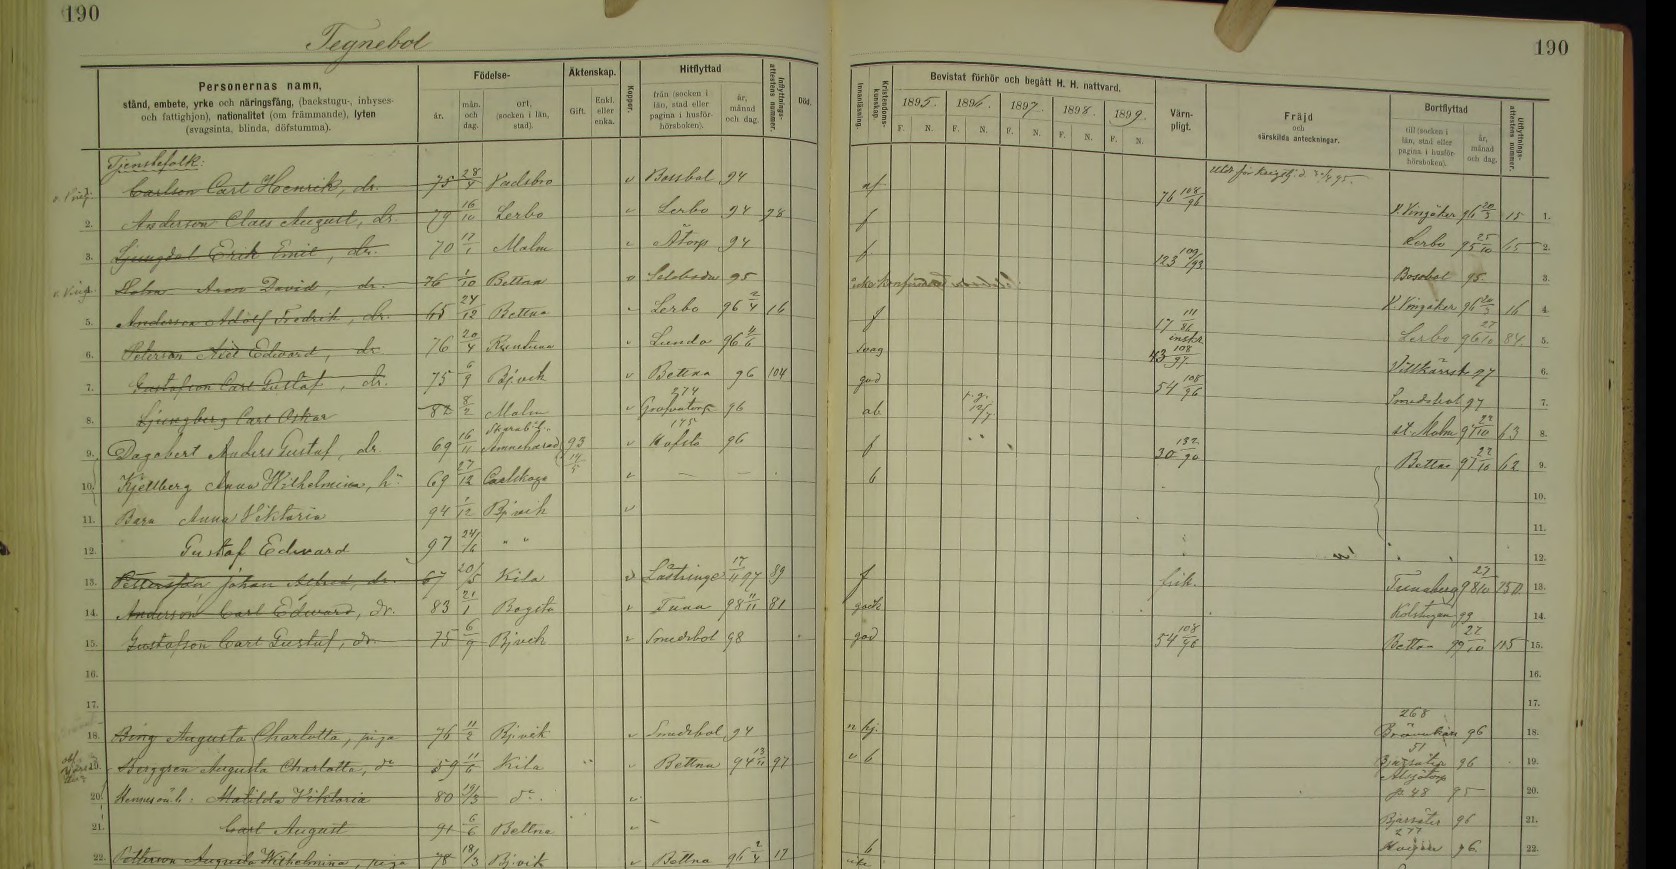 190
190
Tegnebol
Personernas namn,
stånd, embete, yrke och näringsfång, (backstugu-, inhyses-
och fattighjon), nationalitet (om främmande), lyten
(svagsinta, blinda, döfstumma).
Födelse-
år.
mån. och dag.
ort, (socken i län, stad).
Äktenskap.
Gift.
Enkl. eller enka.
Koppor.
Hitflyttad
från (socken i län, stad eller pagina i husförhörsboken).
år, månad och dag.
Inflyttnings-attestens nummer.
Död.
Innanläsning.
Kristendoms-kunskap.
Bevistat förhör och begått H. H. nattvard.
1895. 1896. 1897. 1898. 1899.
F. N. F. N. F. N. F. N. F. N.
Värn-pligt.
Fräjd
och
särskilda anteckningar.
Bortflyttad
till (socken i län, stad eller pagina i husförhörsboken).
år, månad och dag.
Utflyttnings-attestens nummer.
Tjenstefolk:
1. Carlson Carl Henrik, dr. 75 28/4 Vadsbro v Bossbol 94 af 76 108/96 V. Vingåker 96 20/3 15 1.
2. Anderson Claes August, dr. 79 16/10 Lerbo v Lerbo 94 98 f Lerbo 95 25/10 65 2.
3. Ljungdal Erik Emil, dr. 70 17/1 Malm v Åtorp 94 f 123 109/93 Bosebol 95 3.
Aron David, dr. 76 1/10 Bettna v 95 V. Vingåker 96 20/3 16 4.
5. Anderson Adolf Fredrik, dr. 65 24/12 Bettna v Lerbo 96 2/4 16 f 17 111/86 Lerbo 96 27/10 84 5.
6. Peterson Axel Edward, dr. 76 20/4 v Lunda 96 11/6 svag 43 108/97 97 6.
7. Gustafson Carl Gustaf, dr. 75 6/9 Bjvik v Bettna 96 104 god 54 108/96 Smedsbol 97 7.
8. Ljungberg Carl Oskar 82 8/2 Malm v 274 96 ab 12/7 st. Malm 97 22/10 63 8.
9. Dagobert Anders Gustaf, dr. 69 16/11 93 v 175 Hofsta 96 f 30 132/90 Bettna 97 22/10 62 9.
10. Kjellberg Anna Wilhelmina, h. 69 27/12 Carlskoga 14/5 v — — b 10.
11. Barn Anna Viktoria 94 1/12 Bjvik v 11.
12. Gustaf Edward 97 24/6 " " 12.
13. Pettersson Johan Alfred, dr. 67 20/5 Kila v Lästringe 17/11 97 89 f Tunaberg 98 27/10 150 13.
14. Anderson Carl Edward, dr. 83 21/1 Bogsta v Tuna 98 11/11 81 14.
15. Gustafson Carl Gustaf, dr. 75 6/9 Bjvik v Smedsbol 98 god 54 108/96 Bettna 99 27/10 115 15.
16. 16.
17. 17.
18. Bing Augusta Charlotta, piga 76 11/2 Bjvik v Smedsbol 94 n hj. 268 96 18.
19. Berggren Augusta Charlotta, do 59 11/6 Kila v Bettna 94 13/11 97 v b 51 96 19.
20. Matilda Viktoria 80 19/3 do. v p. 48 95 20.
21. Carl August 91 6/6 Bettna v — Bjersäter 96 21.
22. Petterson Augusta Wilhelmina, piga 78 18/3 Bjvik v Bettna 96 2/4 17 b 277 96 22.